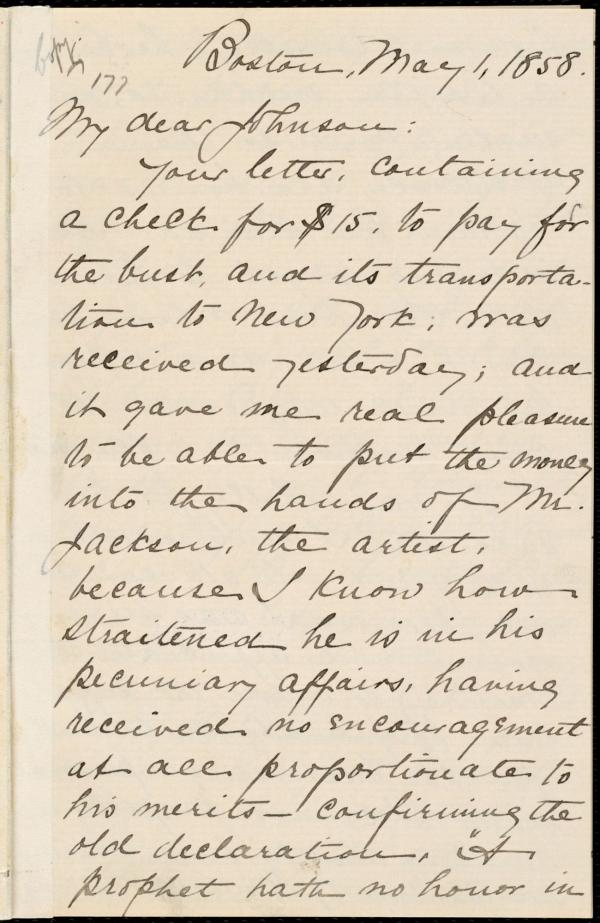 copy.
177
Boston, May 1, 1858.
My dear Johnson:
Your letter, containing
a check for $15, to pay for
the bust, and its transporta-
tion to New York, was
received yesterday; and
it gave me real pleasure
to be able to put the money
into the hands of Mr.
Jackson, the artist,
because I know how
straitened he is in his
pecuniary affairs, having
received no encouragement
at all proportionate to
his merits — confirming the
old declaration, "A
prophet hath no honor in